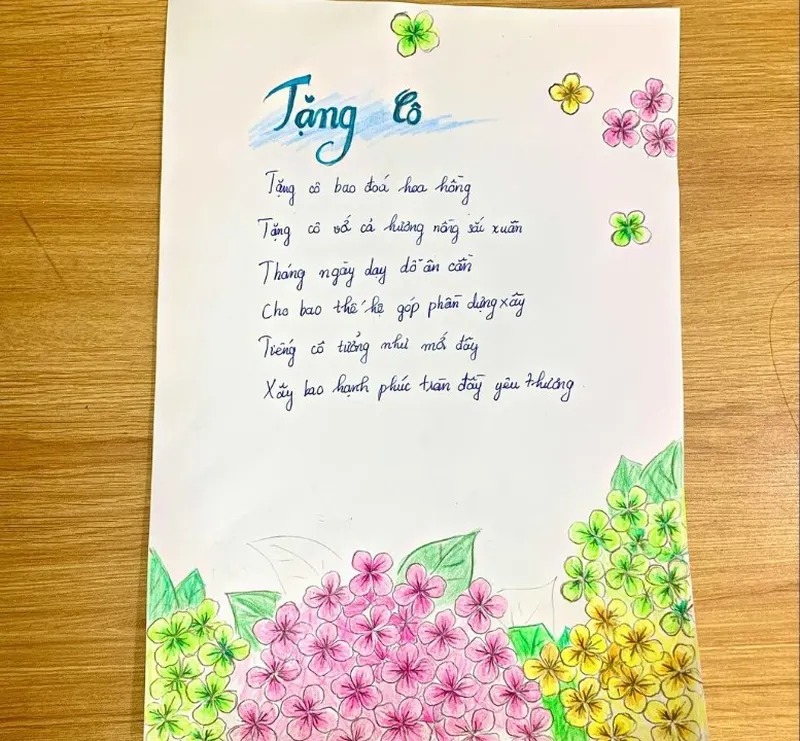 Tặng Cô
Tặng cô bao đoá hoa hồng
Tặng cô với cả hương nồng sắc xuân
Tháng ngày dạy dỗ ân cần
Cho bao thế hệ góp phần dựng xây
Tiếng cô tưởng như mới đây
Xây bao hạnh phúc tràn đầy yêu thương